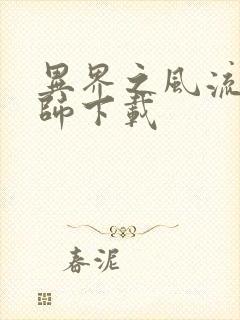 異界之風流
師下載
春泥